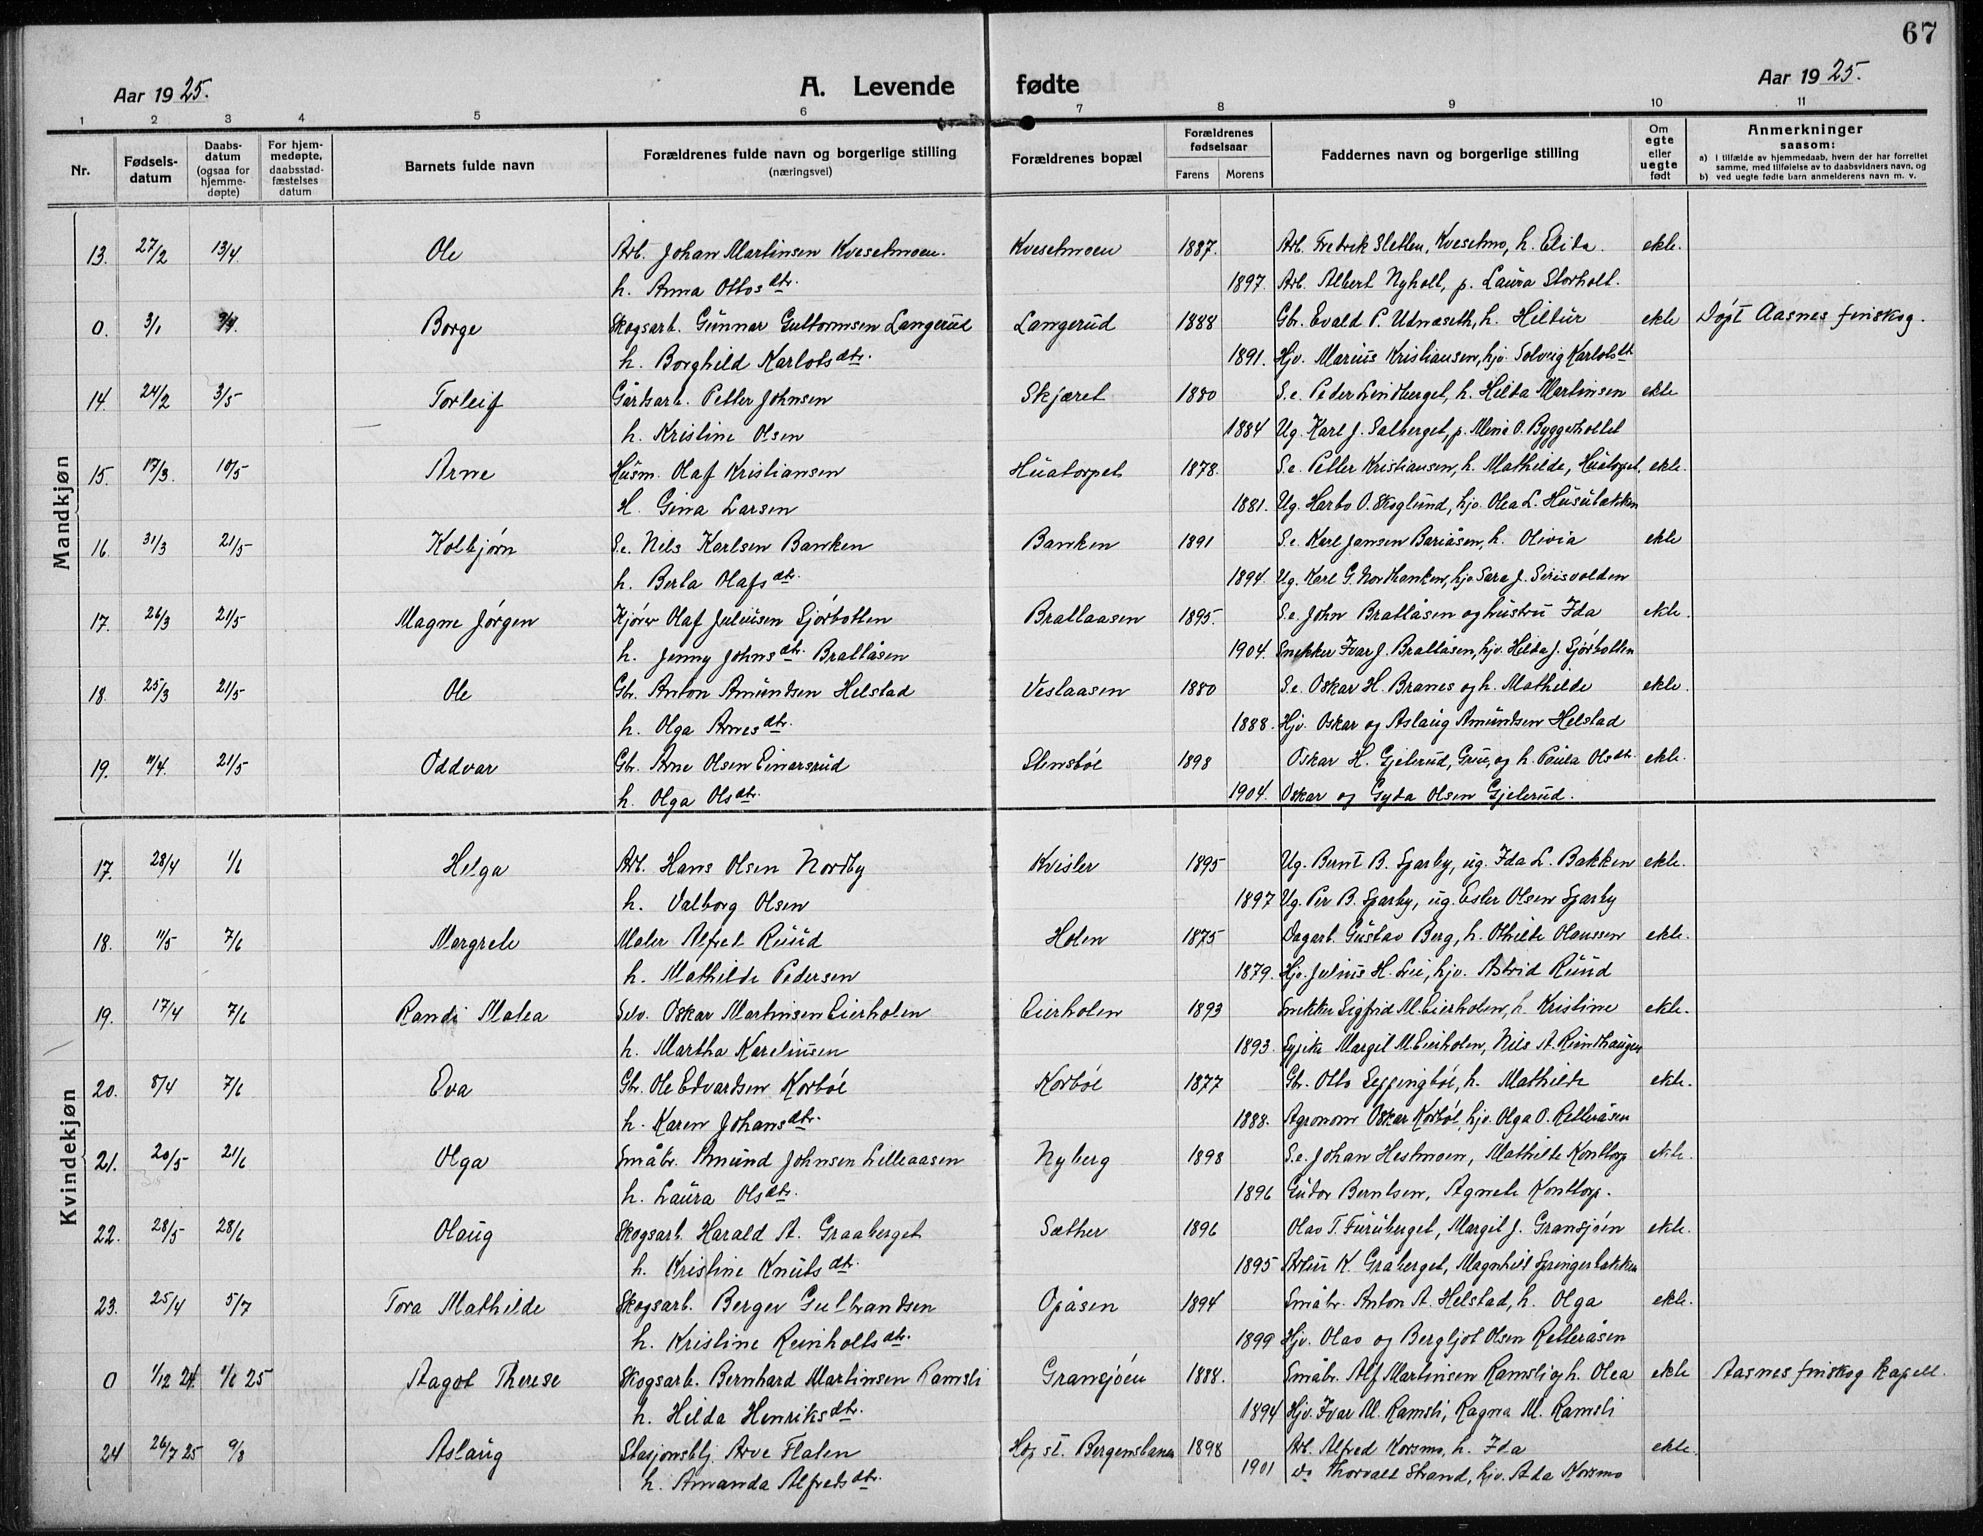 67
Aar 1925. A. Levende fødte Aar 1925.
1 2 3 4 5 6 7 8 9 10 11
Nr. Fødselsdatum Daabsdatum (ogsaa for hjemmedøpte) For hjemmedøpte, daabsstadfæstelses datum Barnets fulde navn Forældrenes fulde navn og borgerlige stilling (næringsvei) Forældrenes bopæl Forældrenes fødselsaar Farens Morens Faddernes navn og borgerlige stilling Om egte eller uegte født Anmerkninger saasom: a) I tilfælde av hjemmedaab, hvem der har forrettet samme, med tilføielse av to daabsvidners navn, og b) ved uegte fødte barn anmelderens navn m. v.
Mandkjøn
13. 27/2 13/4 Ole Arb. Johan Martinsen Kvesetmoen. Kvesetmoen 1887. Arb. Fredrik Sletten, Kvesetmo, h. Elida. ekte.
h. Anna Ottosdtr. 1897. Arb. Albert Nyholt, p. Laura Storholt.
0. 3/1 Borge Skogsarb. Gunnar Guttormsen Langerud Langerud 1888 Gbr. Evald P. Udnæseth, h. Hildur ekte Døpt Aasnes finskog.
h. Borghild Karlotsdtr. 1891. Hjv. Marius Kristiansen, hjv. Solveig Karlotsdt
14. 24/2 3/5 Torleif Gårdsarb. Petter Johnsen Skjæret 1880 S.e. Peder Lindberget, h. Hilda Martinsen ekte
h. Kristine Olsen 1884 Ug. Karl J. Salberget, p. Mena O. Byggeholtet
15. 17/3. 10/5 Arne Husm. Olaf Kristiansen Huatorpet 1878. S.e. Petter Kristiansen, h. Mathilde, Huatorpet ekte.
H. Gina Larsen 1881. Ug. Harbo O. Skoglund, hjv. Olea L. Husubakken
16. 31/3 21/5 Kolbjørn S.e. Nils Karlsen Banken Banken 1891 S.e. Karl Jansen Bariåsen, h. Olivia ekte
h. Berta Olafsdtr. 1894. Ug. Karl G. Nordhanken, hjv. Sara J.
17. 26/3 21/5 Magne Jørgen Kjører Olaf Juliusen Sjørbotten Brattaasen 1895. S.e. John Brattåsen og hustru Ida ekte.
h. Jenny Johnsdtr. Brattåsen 1904. Snekker Ivar J. Brattåsen, hjv. Hilda J. Sjørbotten
18. 25/3 21/5 Ole Gbr. Anton Amundsen Helstad Veslaasen 1880 S.e. Oskar H. Branes og h. Mathilde ekte.
h. Olga Arnesdtr. 1888. Hjv. Oskar og Aslaug Amundsen Helstad
19. 11/4. 21/5 Oddvar Gbr. Arne Olsen Einarsrud Stensbøl 1898 Oskar H. Gjelerud, Grue, og h. Paula Olsdtr. ekte.
h. Olga Olsdtr. 1904. Oskar og Gyda Olsen Gjelerud.
Kvindekjøn
17. 28/4 1/6 Helga Arb. Hans Olsen Nordby Kvisler 1895 Ug. Bernt B. Sparby, ug. Ida L. Bakken ekte.
h. Valborg Olsen 1897 Ug. Per B. Sparby, ug. Ester Olsen Sparby
18. 11/5 7/6 Margrete Maler Alfred Ruud Holen 1875 Dagarb. Gustav Berg, h. Othilde Olaussen ekte.
h. Mathilde Pedersen 1879. Hjv. Julius H. Lie, hjv. Astrid Ruud
19. 17/4 7/6 Randi Malea Selv. Oskar Martinsen Eierholen Eierholen 1893 Snekker Sigfrid M. Eierholen, h Kristine ekte.
h. Martha Kareliusen 1893. Margit M. Eierholen, Nils A. Rundhaugen
20. 8/4 7/6 Eva Gbr. Ole Edvardsen Korbøl Korbøl 1877 Gbr. Otto Eggingbøl, h. Mathilde ekte.
h. Karen Johansdtr. 1888. Agronom Oskar Korbøl, hjv. Olga O. Retteråsen
21. 20/5 21/6 Olga Småbr. Amund Johnsen Lilleaasen Nyberg 1898 S.e. Johan Hestmoen, Mathilde Konttorp ekte.
h. Laura Olsdtr. 1896 Gudor Berntsen, Agnete Konttorp.
22. 28/5 28/6 Olaug Skogsarb. Harald A. Graaberget Sæther 1896 Olav T. Furuberget, Margit J. Gransjøen ekte.
h. Kristine Knutsdtr. 1895 K. Graberget, Magnhild Springerbakken
23. 25/4 5/7 Tora Mathilde Skogsarb. Berger Gulbrandsen Opåsen 1894 Småbr. Anton A. Helstad, h. Olga ekte.
h. Kristine Reinholtsdtr. 1899 Hjv. Olav og Bergljot Olsen Retteråsen
0 1/12 24. 1/6 25 Aagot Therese Skogsarb. Bernhard Martinsen Ramsli Gransjøen 1888. Småbr. Alf Martinsen Ramsli og h. Olea ekte Aasnes finskog kapell.
h. Hilda Henriksdtr. 1894 Hjv. Ivar M. Ramsli, Ragna M. Ramsli
24 26/7 25 9/8 Aslaug Stasjonsbtj. Arve Flaten Hop st. Bergensbanen 1898 Arb. Alfred Korsmo, h. Ida ekte.
h. Amanda Alfredsdtr. 1901 do Thorvald Strand, hjv. Ada Korsmo